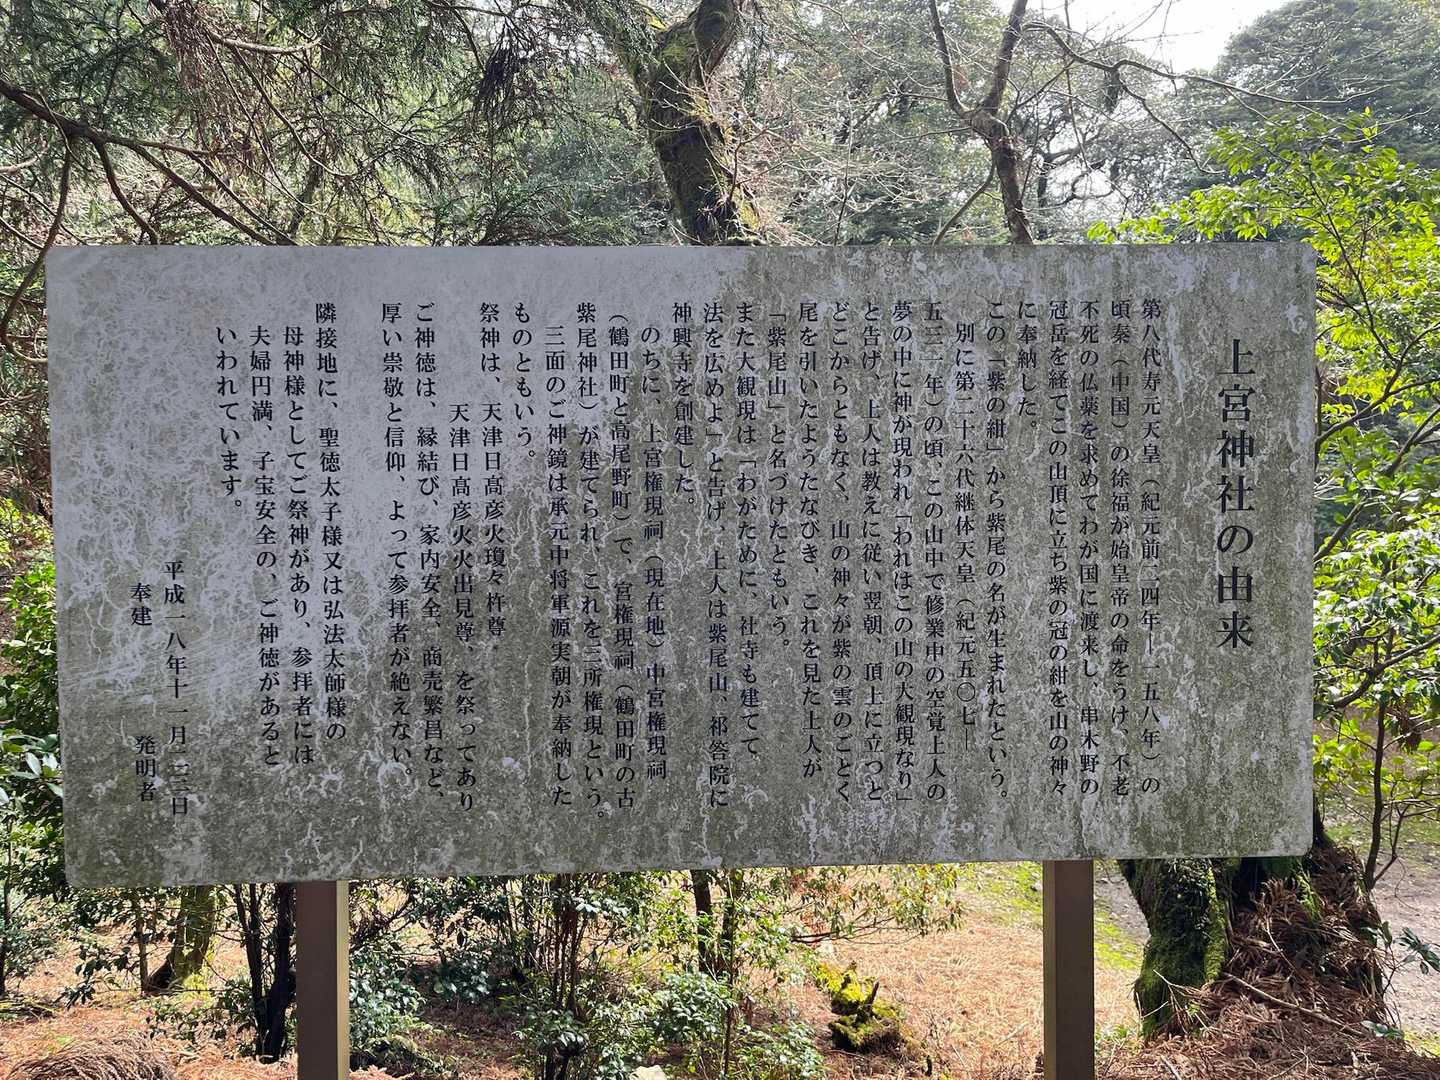 上宮神社の由来
第八代寿元天皇（紀元前二一四年―一五八年）の
頃秦（中国）の徐福が始皇帝の命をうけ、不老
不死の仏薬を求めてわが国に渡来し、串木野の
冠岳を経てこの山頂に立ち紫の冠の紺を山の神々
に奉納した。
この「紫の紺」から紫尾の名が生まれたという。
別に第二十六代継体天皇（紀元五〇七―
五三一年）の頃、この山中で修業中の空覚上人の
夢の中に神が現われ「われはこの山の大観現なり」
と告げ、上人は教えに従い翌朝、頂上に立つと
どこからともなく、山の神々が紫の雲のごとく
尾を引いたようたなびき、これを見た上人が
「紫尾山」と名づけたともいう。
また大観現は「わがために、社寺も建てて
法を広めよ」と告げ、上人は紫尾山、祁答院に
神興寺を創建した。
のちに、上宮権現祠（現在地）中宮権現祠
（鶴田町と高尾野町）で、宮権現祠（鶴田町の古
紫尾神社）が建てられ、これを三所権現という。
三面のご神鏡は承元中将軍源実朝が奉納した
ものともいう。
祭神は、天津日高彦火瓊々杵尊
天津日高彦火火出見尊、を祭ってあり
ご神徳は、縁結び、家内安全、商売繁昌など、
厚い崇敬と信仰、よって参拝者が絶えない。
隣接地に、聖徳太子様又は弘法太師様の
母神様としてご祭神があり、参拝者には
夫婦円満、子宝安全の、ご神徳があると
いわれています。
平成一八年十一月二三日
奉建 発明者